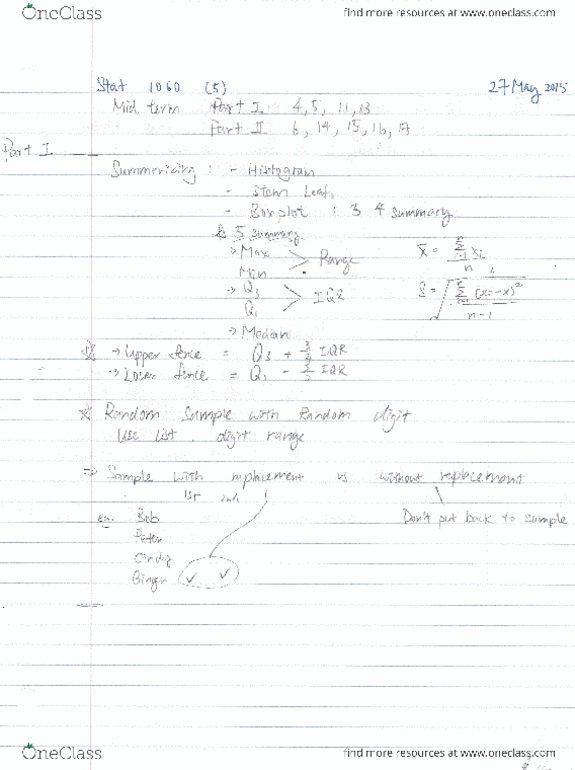 OneClass
find more resources at www.oneclass.com
Stat 1060 (5) 27 May 2015
Mid term Part I 4, 5, 11, 13
Part II 6, 14, 15, 16, 17
Part I
Summerizing : - Histogram
- Stem Leaf.
- Boxplot : 3 4 summary
5 summary
→ Max
Min
Range
→ Q3
Q1
IQR
→ Median
x̄ = Σ xi / n
S = √ Σ (xi - x)² / n-1
→ Upper fence = Q3 + 3/2 IQR
→ Lower fence = Q1 - 3/2 IQR
Random Sample with Random digit
Use list . digit range
⇒ Sample with replacement vs without replacement
1st 2nd
Don't put back to sample
eg. Bob
Peter
Cindy
Ginger ✓ ✓
OneClass
find more resources at www.oneclass.com